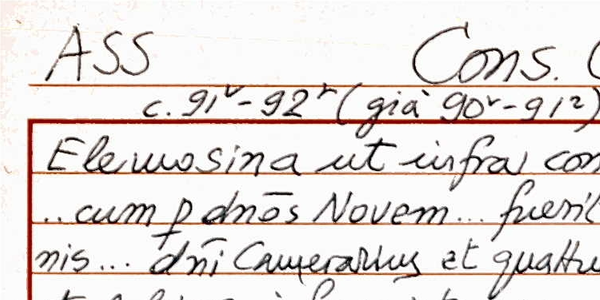 ASS Cons.
c. 91v-92r (già 90v-91r)
Elemosina ut infra con
.. cum p dnōs Novem... fuerit
nis... dn̄i Camerarius et quattu